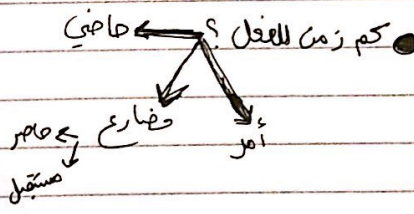 كم زمن للفعل ؟ ماضي
مضارع حاضر
أمر
مستقبل